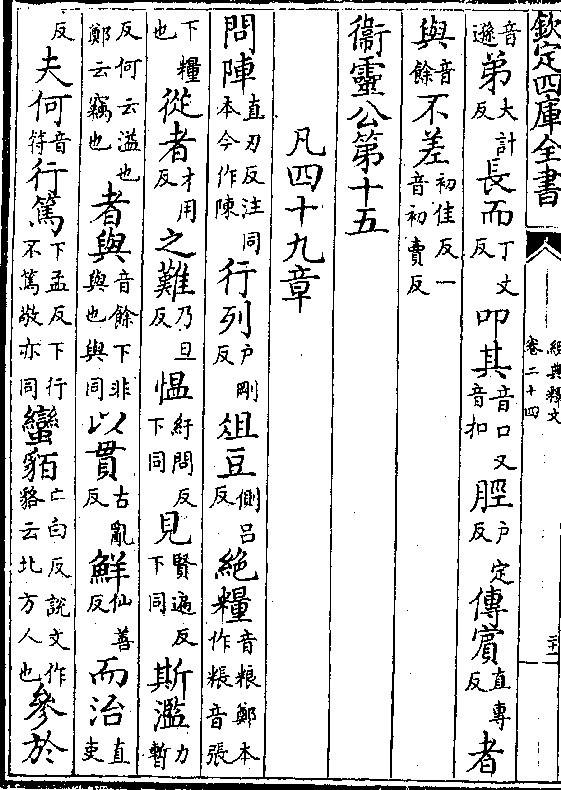 欽定四庫全書
經典釋文
卷二十四
音遜弟大計反長而丁丈反叩其音口又音扣脛户定反傳賔直專反者
與音餘不差初佳反一音初賣反
衞靈公第十五
凡四十九章
問陣直刃反注同本今作陳行列户剛反俎豆側吕反絶糧音粮鄭本作粻音張
下糧也從者才用反之難乃旦反愠紆問反下同見賢遍反下同斯濫力暫
反何云溢也鄭云竊也者與音餘下非與也與同以貫古亂反鮮仙善反而治直吏
反夫何音符行篤下孟反下行不篤敬亦同蠻貊亡白反說文作貉云北方人也參於